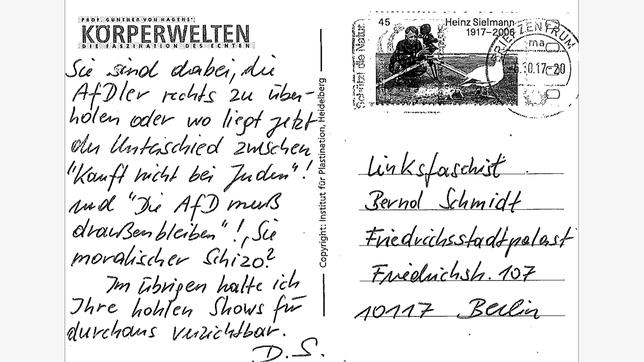 PROF. GUNTHER VON HAGENS'
KÖRPERWELTEN
DIE FASZINATION DES ECHTEN
Sie sind dabei, die
AfDler rechts zu über-
holen oder wo liegt jetzt
der Unterschied zwischen
"Kauft nicht bei Juden"!
und "Die AfD muß
draußenbleiben"!, Sie
moralischer Schizo?
Im übrigen halte ich
Ihre hohlen Shows für
durchaus verzichtbar.
D.S.
Copyright: Institut für Plastination, Heidelberg
45
Heinz Sielmann
1917-2006
Schützt die Natur
BRIEFZENTRUM
ma
.10.17-20
Linksfaschist
Bernd Schmidt
Friedrichsstadtpalast
Friedrichstr. 107
10117 Berlin